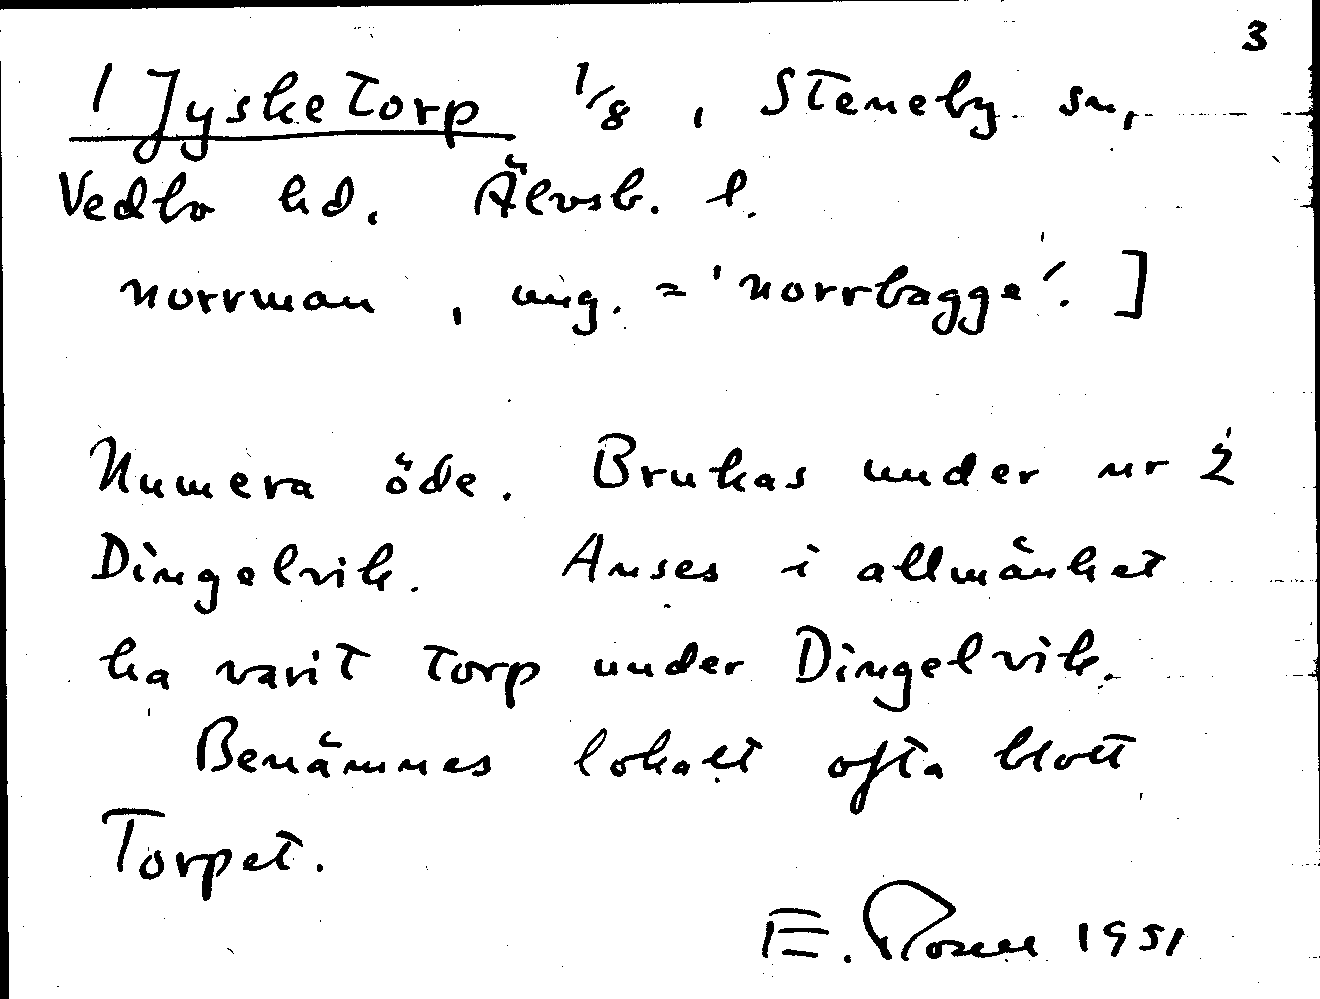 3
1 Jysketorp 1/8, Steneby sn,
Vedbo hd. Älvsb. l.
norrman, ung. = 'norrbagge'. ]
Numera öde. Brukas under nr 2
Dingelvik. Anses i allmänhet
ha varit torp under Dingelvik.
Benämnes lokalt ofta blott
Torpet.
E. Rosell 1951